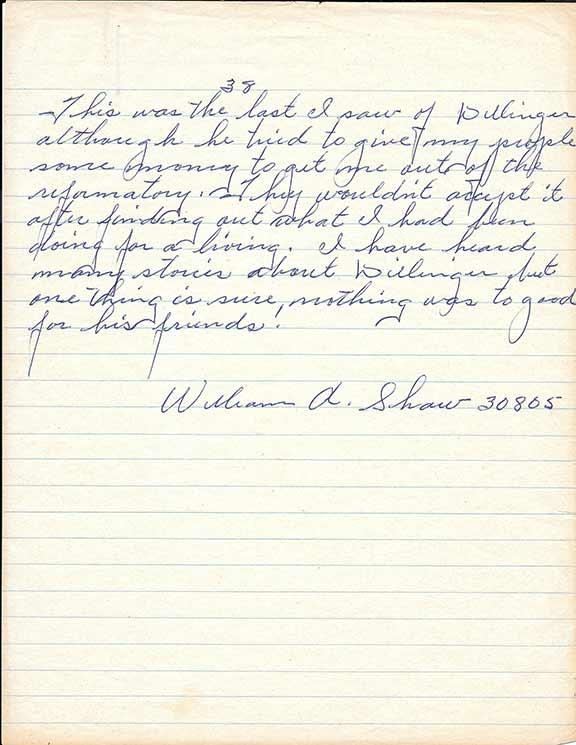 38
This was the last I saw of Dillinger
although he tried to give my people
some money to get me out of the
reformatory. They wouldn't accept it
after finding out what I had been
doing for a living. I have heard
many stories about Dillinger but
one thing is sure, nothing was to good
for his friends!
William A. Shaw 30805